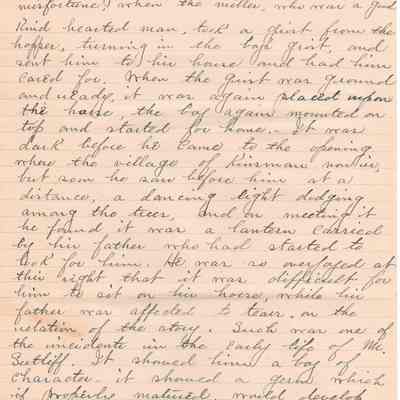 misfortune) when the miller, who was a good
kind hearted man, took a grist from the
hopper, turning in the boys grist, and
sent him to his house and had him
cared for. When the grist was ground
and ready, it was again placed upon
the horse, the boy again mounted on
top and started for home. It was
dark before he came to the opening
where the village of Kinsman now is,
but soon he saw before him at a
distance, a dancing light dodging
among the trees, and on meeting it
he found it was a lantern carried
by his father who had started to
look for him. He was so overjoyed at
this sight that it was difficult for
him to sit on his horse, while his
father was affected to tears, on the
relation of the story. Such was one of
the incidents in the early life of Mr.
Sutliff. It showed him a boy of
character. it showed a germ which
if properly matured, would develop